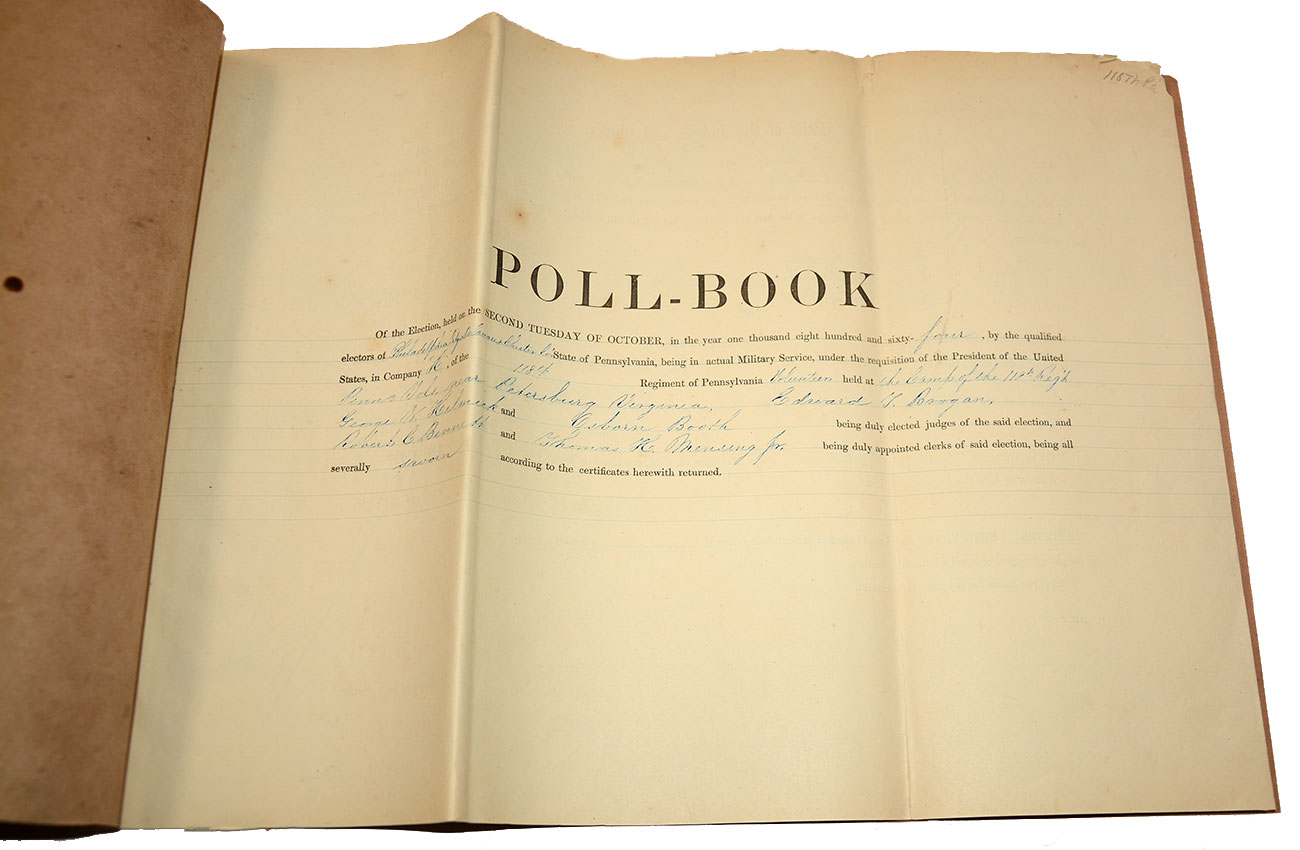 118th Pa
POLL-BOOK
Of the Election, held on the SECOND TUESDAY OF OCTOBER, in the year one thousand eight hundred and sixty-four, by the qualified
electors of Philadelphia City & State of Pennsylvania, being in actual Military Service, under the requisition of the President of the United
States, in Company K, of the 118th Regiment of Pennsylvania Volunteers held at the Camp of the 118th Regt
Penna Vols near Petersburg Virginia. Edward T. Brogan,
George W. and Osborn Booth being duly elected judges of the said election, and
Robert C Bennett and Thomas K. Mensing Jr. being duly appointed clerks of said election, being all
severally sworn according to the certificates herewith returned.